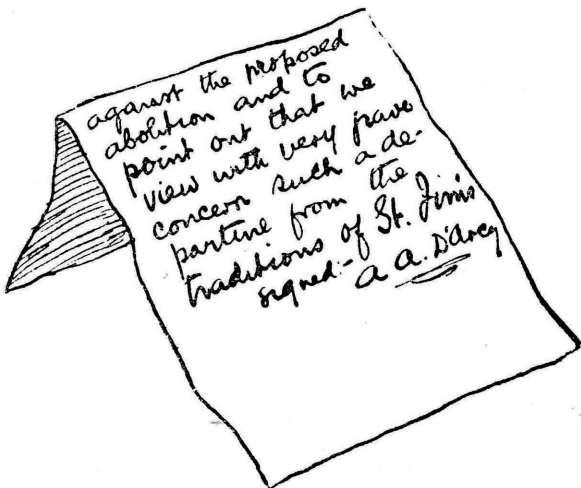 against the proposed
abolition and to
point out that we
view with very grave
concern such a de-
parture from the
traditions of St. Jim's
signed:- 
a A. D'Arcy